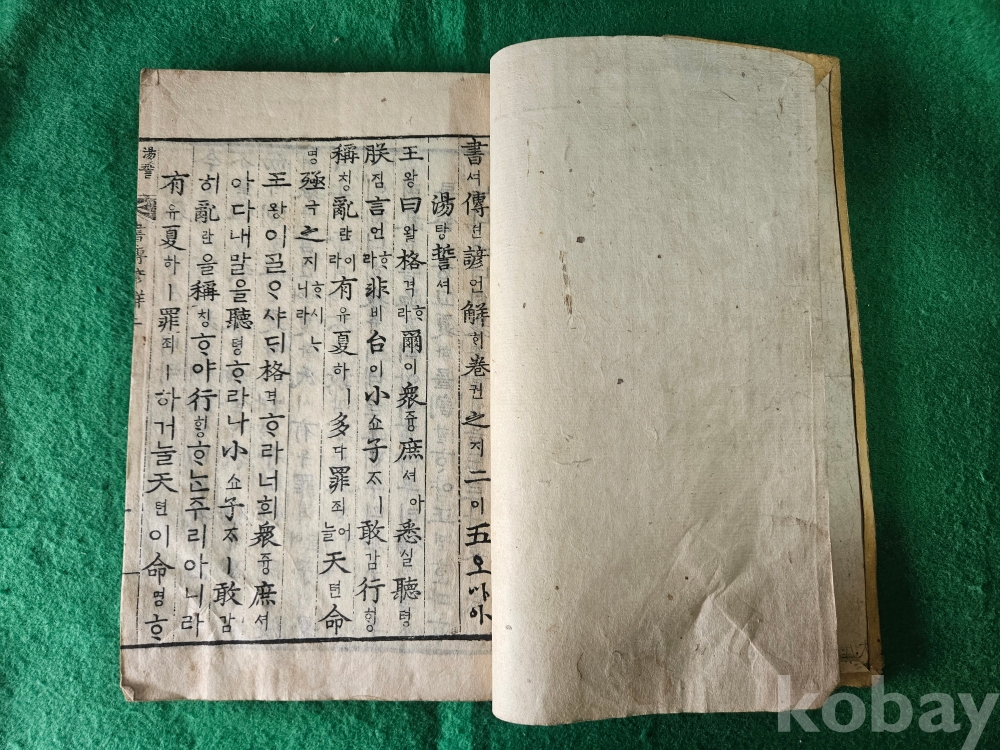 書셔傳뎐諺언解ᄒᆡ卷권之지二이 五오
湯탕誓셔
王왕曰왈格격ᄒᆞ라爾이衆즁庶셔아悉실聽텽
朕짐言언ᄒᆞ라非비台이小쇼子ᄌᆞㅣ敢감行ᄒᆡᆼ
稱칭亂란이라有유夏하ㅣ多다罪죄어늘天텬命
명殛극之지ᄒᆞ시니라
王왕이ᄀᆞᆯᄋᆞ샤ᄃᆡ格격ᄒᆞ라너희衆즁庶셔
아다내말을聽텽ᄒᆞ라나小쇼子ᄌᆞㅣ敢감
히亂란을稱칭ᄒᆞ야行ᄒᆡᆼᄒᆞ논주리아니라
有유夏하ㅣ罪죄ㅣ하거늘天텬이命명ᄒᆞ
湯誓
kobay